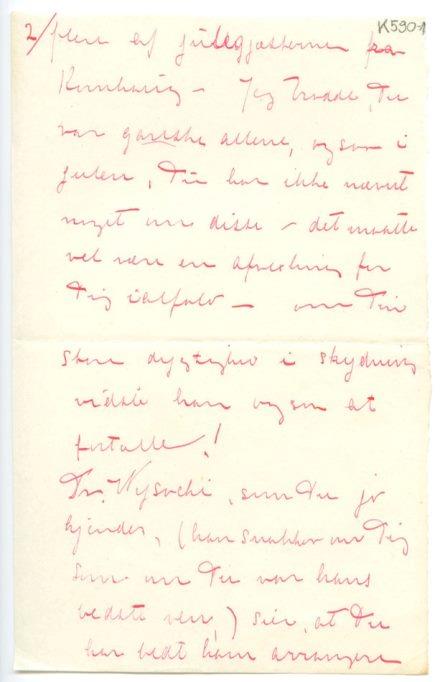 K590-1
2/ flere af julegjæsterne fra
– Jeg troede, Du
var ganske allene, ogsaa i
julen, Du har ikke nævnt
noget om disse – det maatte
vel være en afvexling for
Dig ialfald – om Din
store dygtighed i skydning
vidste han ogsaa at
fortælle!
Dr. Wysocki, som Du jo
kjender, (han snakker om Dig
som om Du var hans
bedste ven,) sier, at Du
har bedt ham arrangere